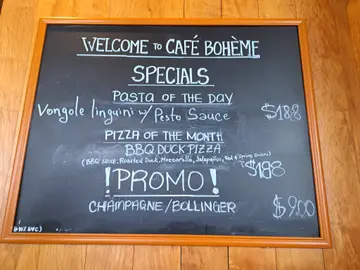 WELCOME TO CAFÉ BOHÈME
SPECIALS
PASTA OF THE DAY
Vongole linguini w/ Pesto Sauce $188
PIZZA OF THE MONTH
BBQ DUCK PIZZA
(BBQ sauce, Roasted Duck, Mozzarella, Jalapeños, Red & Spring Onions) $198
!PROMO!
CHAMPAGNE/BOLLINGER $900